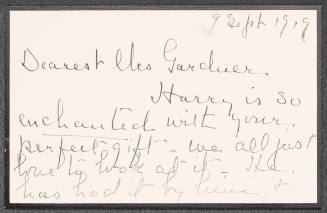 9 Sept 1919
Dearest Mrs Gardner.
Harry is so
enchanted with your
perfect gift - we all just
love to look at it - He
has had it by him &